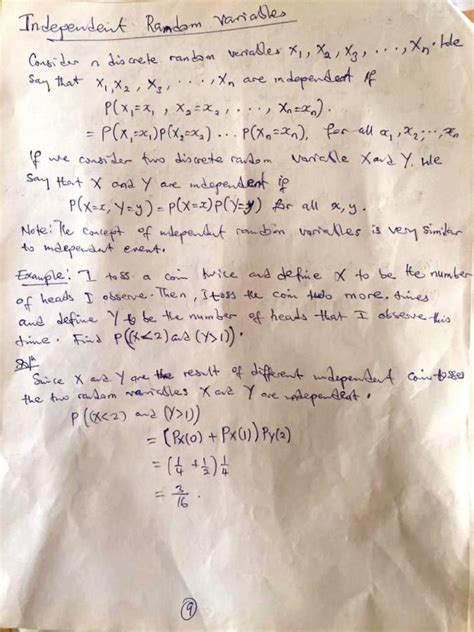 Independent Random Variables
Consider n discrete random variables X₁, X₂, X₃, ..., Xₙ. We
say that X₁, X₂, X₃, ..., Xₙ are independent if
P(X₁=x₁, X₂=x₂, ..., Xₙ=xₙ).
= P(X₁=x₁)P(X₂=x₂) ... P(Xₙ=xₙ), for all x₁, x₂, ..., xₙ
If we consider two discrete random variable X and Y. We
say that X and Y are independent if
P(X=x, Y=y) = P(X=x)P(Y=y) for all x, y.
Note: The concept of independent random variables is very similar
to independent event.
Example: I toss a coin twice and define X to be the number
of heads I observe. Then, I toss the coin two more times
and define Y to be the number of heads that I observe this
time. Find P((X<2) and (Y>1)).
Solⁿ
Since X and Y are the result of different independent coin tosses
the two random variables X and Y are independent.
P((X<2) and (Y>1))
= (Px(0) + Px(1)) Py(2)
= (1/4 + 1/2) 1/4
= 3/16.
9